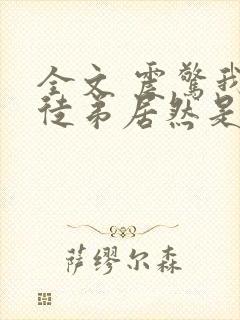 全文 震驚我
徒弟居然是
萨缪尔森